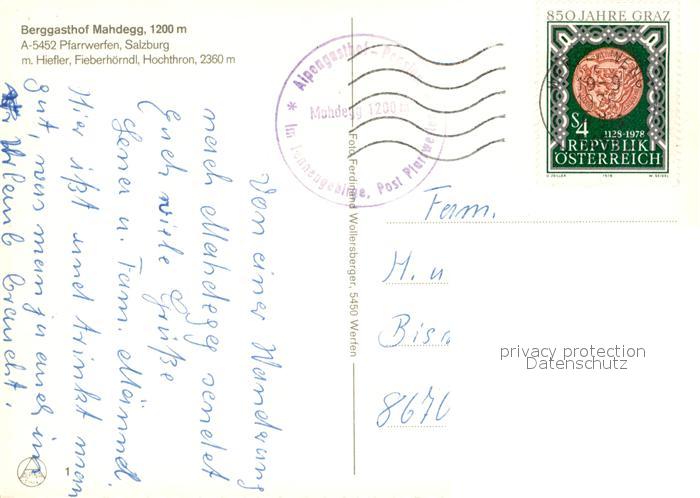 Berggasthof Mahdegg, 1200 m
A-5452 Pfarrwerfen, Salzburg
m. Hiefler, Fieberhörndl, Hochthron, 2360 m
850 JAHRE GRAZ
S4
1128-1978
REPUBLIK
ÖSTERREICH
Alpengasthof - Pension
Mahdegg 1200 m
Im Tennengebirge, Post Pfarrwerfen
Foto Ferdinand Wollersberger, 5450 Werfen
Von einer Wanderung
nach Mahdegg sendet
Euch viele Grüße
Lena u. Fam.
Hier ißt und trinkt man
gut, nur man ja auch in
Urlaub braucht.
Fam.
H. u
Bis
8670
privacy protection
Datenschutz
1